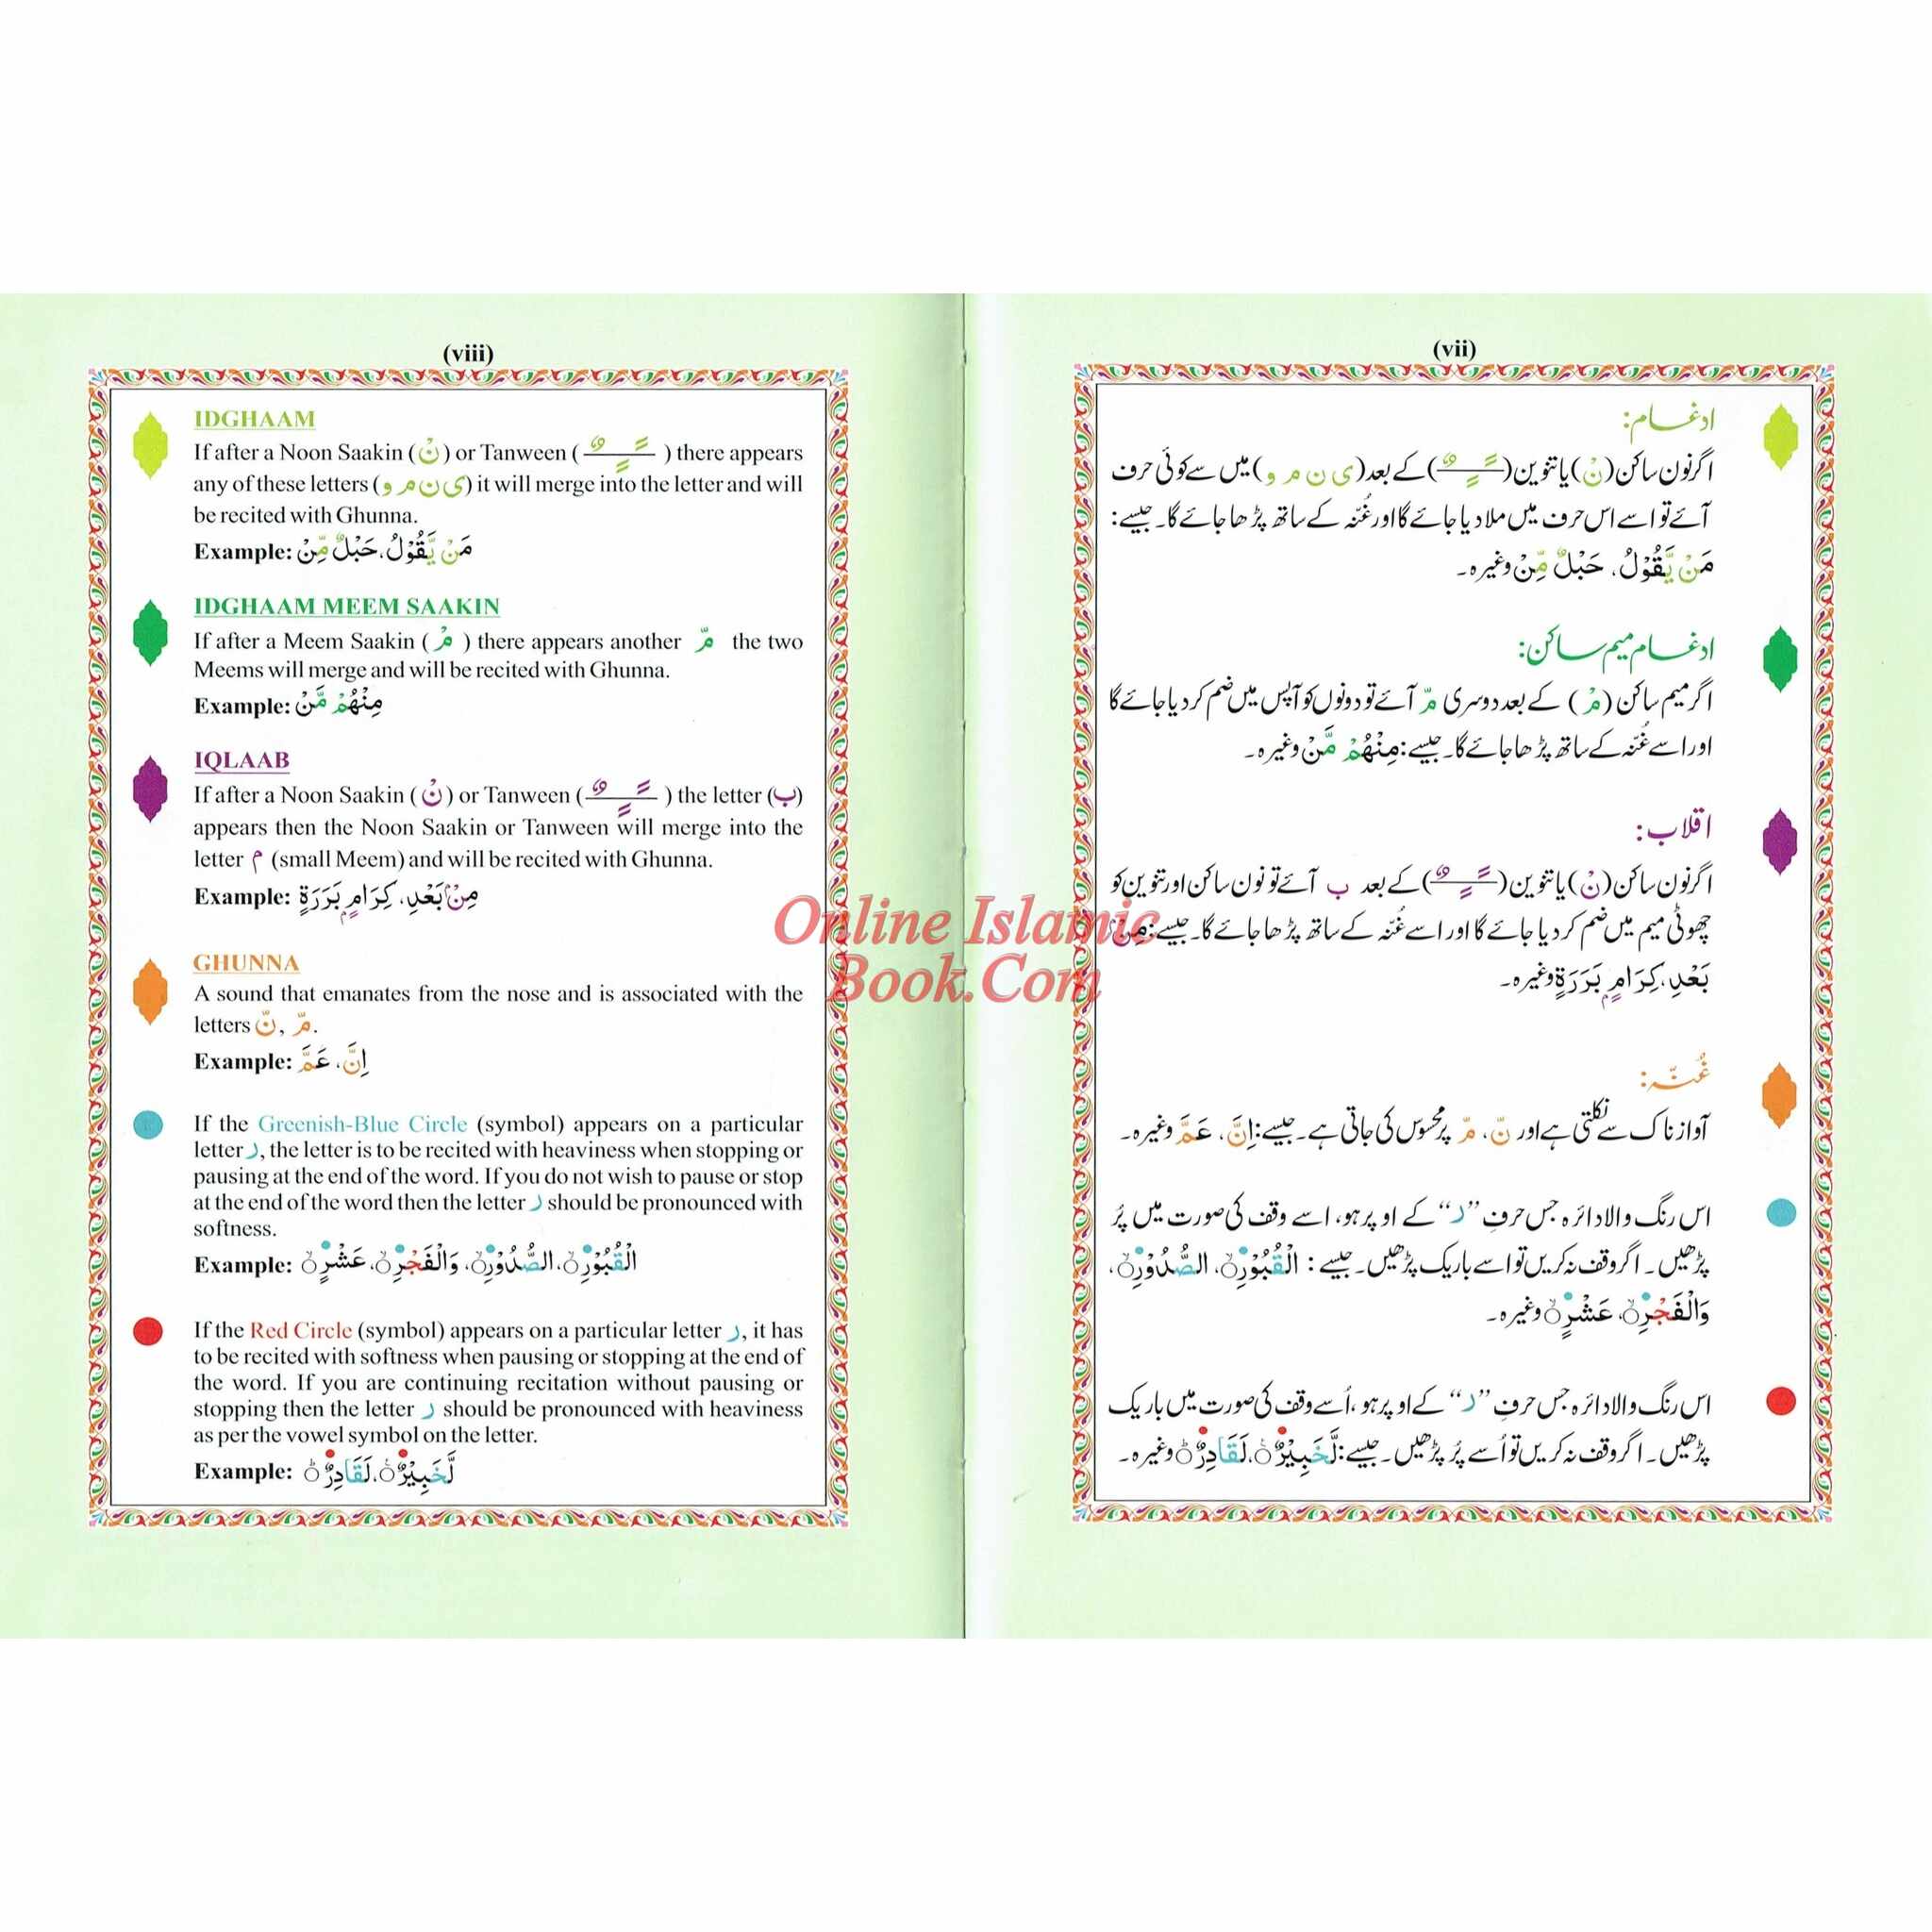 (viii)
IDGHAAM
If after a Noon Saakin (نْ) or Tanween ( ـًـٍـٌ ) there appears
any of these letters (ی ن م و) it will merge into the letter and will
be recited with Ghunna.
Example: مَنْ يَّقُوْلُ، حَبْلٌ مِّنْ
IDGHAAM MEEM SAAKIN
If after a Meem Saakin ( مْ ) there appears another مّ the two
Meems will merge and will be recited with Ghunna.
Example: مِنْهُمْ مَّنْ
IQLAAB
If after a Noon Saakin ( نْ ) or Tanween ( ـًـٍـٌ ) the letter (ب)
appears then the Noon Saakin or Tanween will merge into the
letter م (small Meem) and will be recited with Ghunna.
Example: مِنْۢ بَعْدِ، كِرَامٍۭ بَرَرَةٍ
GHUNNA
A sound that emanates from the nose and is associated with the
letters نّ, مّ.
Example: اِنَّ، عَمَّ
If the Greenish-Blue Circle (symbol) appears on a particular
letter ر, the letter is to be recited with heaviness when stopping or
pausing at the end of the word. If you do not wish to pause or stop
at the end of the word then the letter ر should be pronounced with
softness.
Example: الْقُبُوْرِۙ، الصُّدُوْرِۙ، وَالْفَجْرِۙ، عَشْرٍۙ
If the Red Circle (symbol) appears on a particular letter ر, it has
to be recited with softness when pausing or stopping at the end of
the word. If you are continuing recitation without pausing or
stopping then the letter ر should be pronounced with heaviness
as per the vowel symbol on the letter.
Example: لَّخَبِيْرٌ۠، لَقَادِرٌؕ
(vii)
ادغام:
اگر نون ساکن (نْ) یا تنوین (ـًـٍـٌ) کے بعد (ی ن م و) میں سے کوئی حرف
آئے تو اسے اس حرف میں ملا دیا جائے گا اور غُنّہ کے ساتھ پڑھا جائے گا۔ جیسے:
مَنْ يَّقُوْلُ، حَبْلٌ مِّنْ وغیرہ۔
ادغام میم ساکن:
اگر میم ساکن (مْ) کے بعد دوسری مّ آئے تو دونوں کو آپس میں ضم کر دیا جائے گا
اور اسے غُنّہ کے ساتھ پڑھا جائے گا۔ جیسے: مِنْهُمْ مَّنْ وغیرہ۔
اقلاب:
اگر نون ساکن (نْ) یا تنوین (ـًـٍـٌ) کے بعد ب آئے تو نون ساکن اور تنوین کو
چھوٹی میم میں ضم کر دیا جائے گا اور اسے غُنّہ کے ساتھ پڑھا جائے گا۔ جیسے: مِنْۢ
بَعْدِ، كِرَامٍۭ بَرَرَةٍ وغیرہ۔
غُنّہ:
آواز ناک سے نکلتی ہے اور نّ، مّ پر محسوس کی جاتی ہے۔ جیسے: اِنَّ، عَمَّ وغیرہ۔
اس رنگ والا دائرہ جس حرفِ ”ر“ کے اوپر ہو، اسے وقف کی صورت میں پُر
پڑھیں۔ اگر وقف نہ کریں تو اسے باریک پڑھیں۔ جیسے: الْقُبُوْرِۙ، الصُّدُوْرِۙ،
وَالْفَجْرِۙ، عَشْرٍۙ وغیرہ۔
اس رنگ والا دائرہ جس حرفِ ”ر“ کے اوپر ہو، اُسے وقف کی صورت میں باریک
پڑھیں۔ اگر وقف نہ کریں تو اُسے پُر پڑھیں۔ جیسے: لَّخَبِيْرٌ۠، لَقَادِرٌؕ وغیرہ۔
Online Islamic
Book.Com